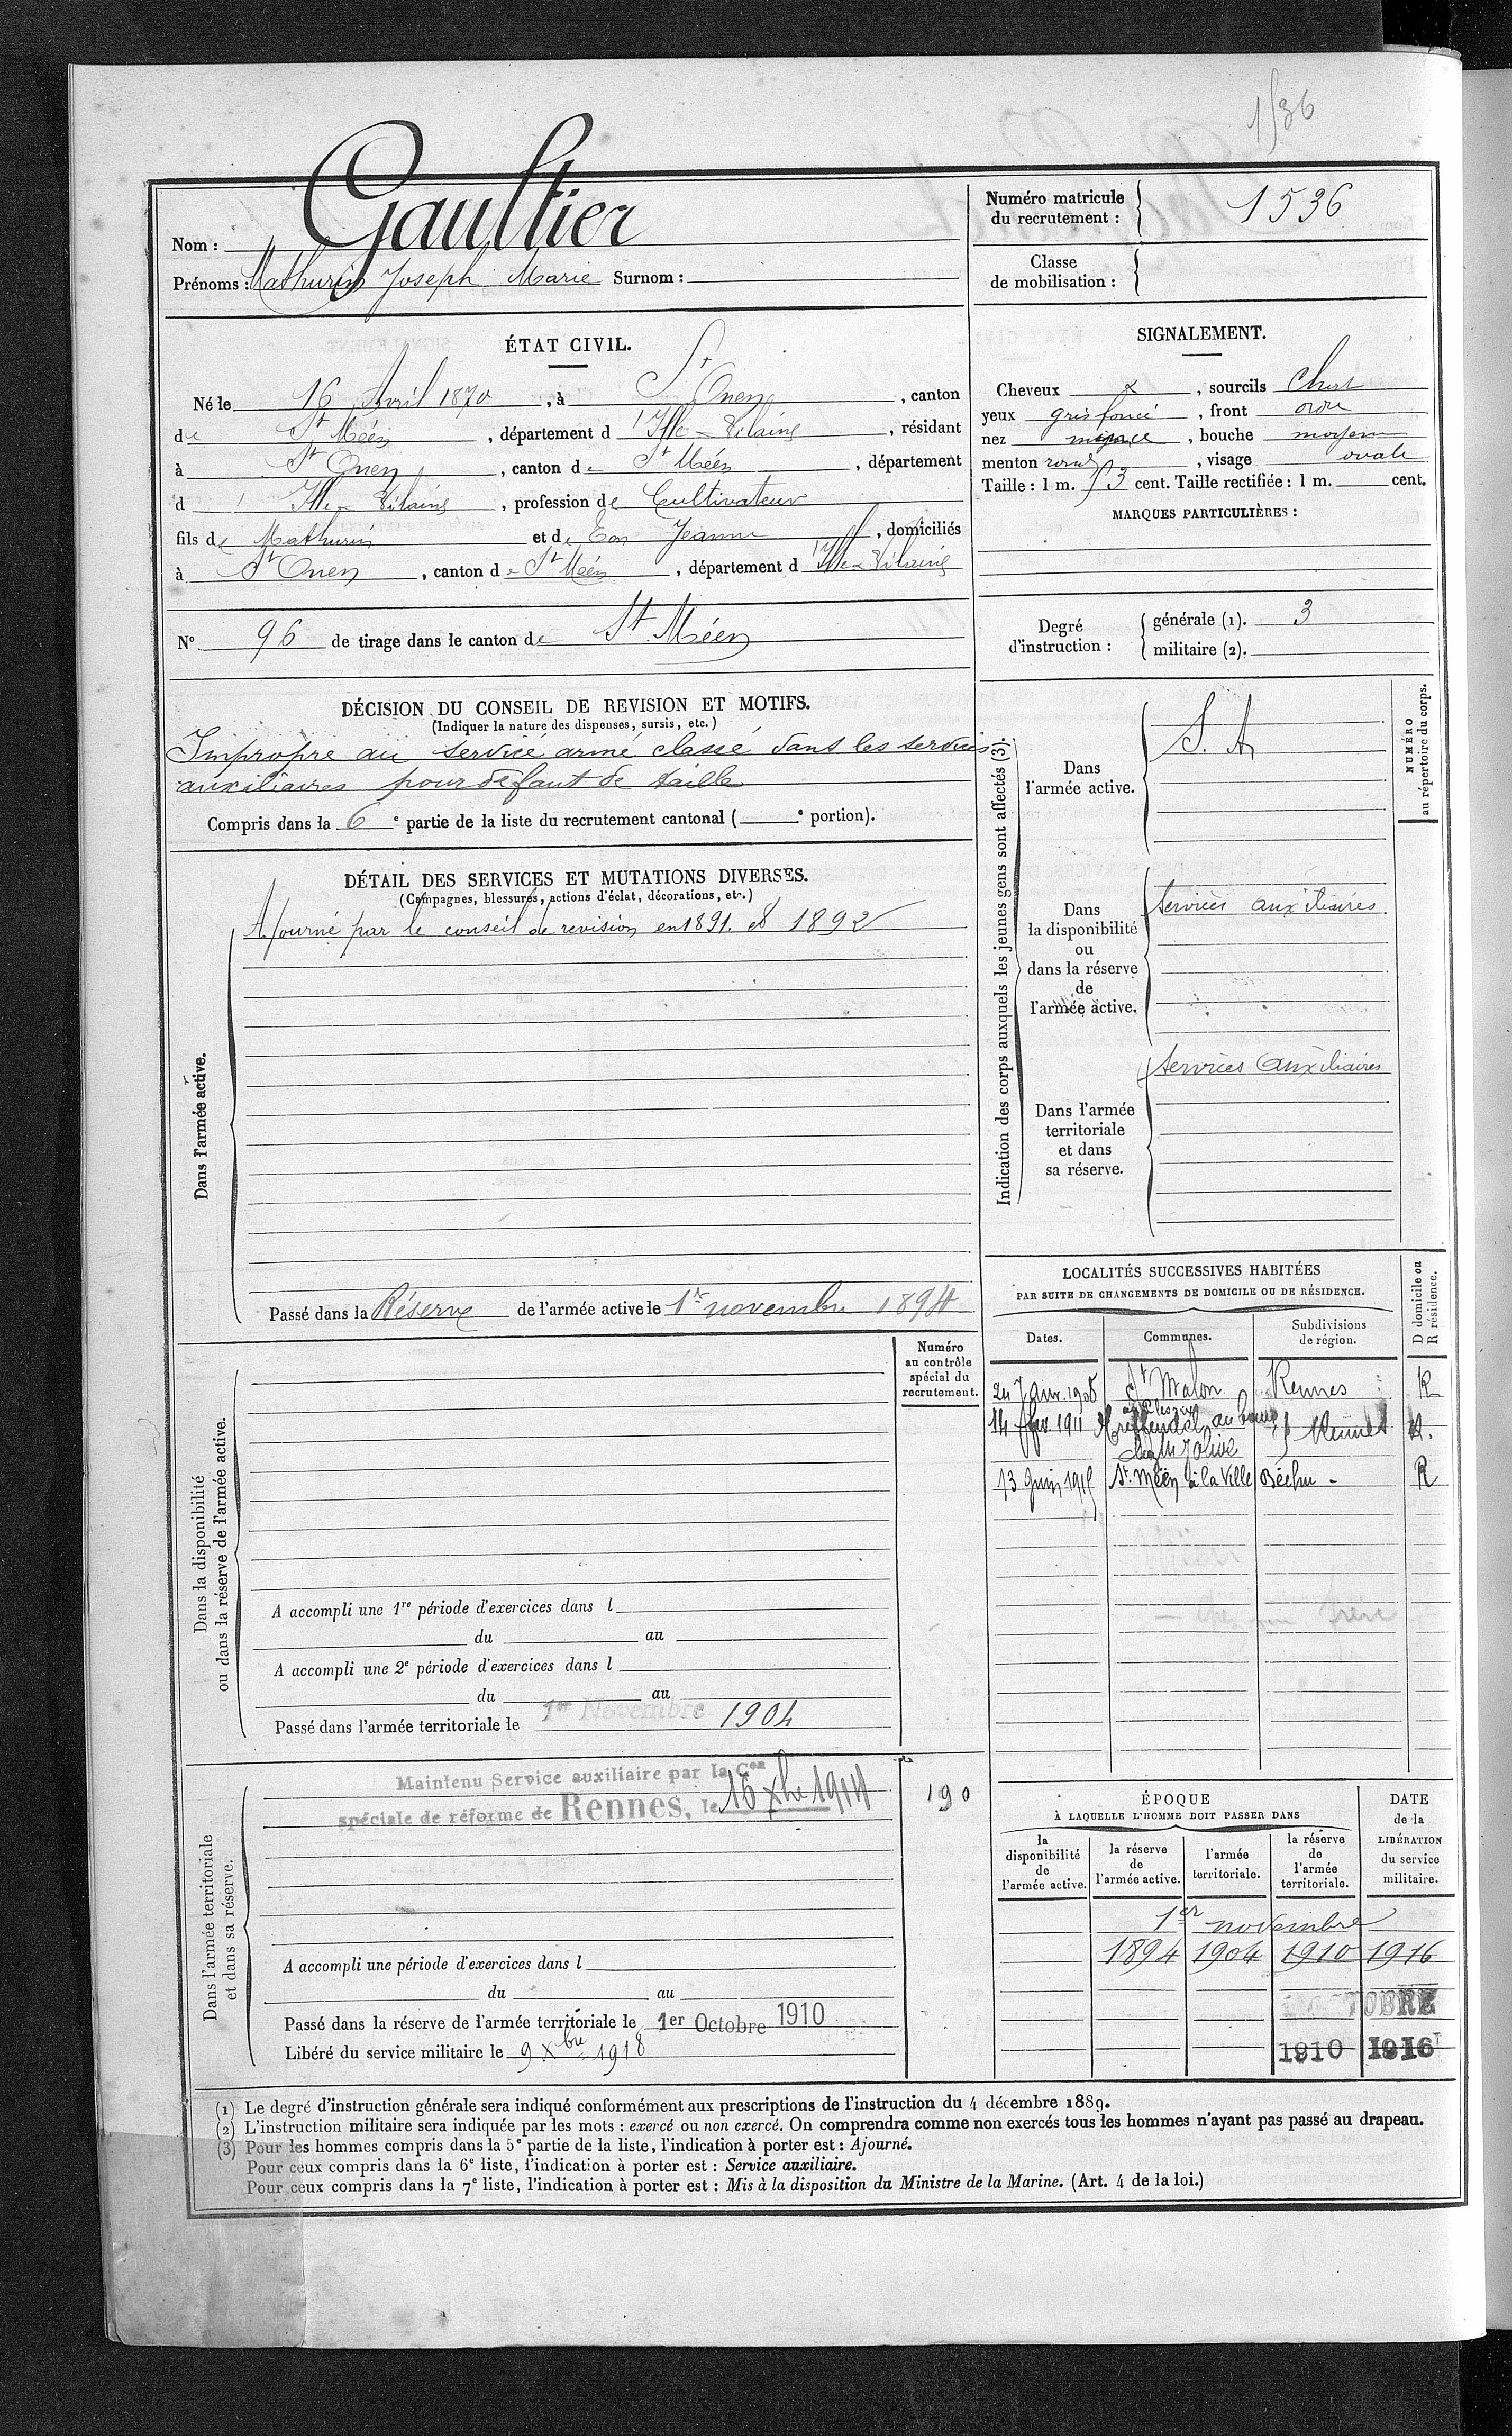 1536
Nom : Gaultier
Prénoms : Mathurin Joseph Marie Surnom :
Numéro matricule
du recrutement : 1536
Classe
de mobilisation :
ÉTAT CIVIL.
Né le 16 Avril 1870, à St Onen, canton
de St Méen, département d'Ille-Vilaine, résidant
à St Onen, canton de St Méen, département
d'Ille-Vilaine, profession de Cultivateur
fils de Mathurin et de Eon Jeanne, domiciliés
à St Onen, canton de St Méen, département d'Ille-Vilaine
N° 96 de tirage dans le canton de St Méen
SIGNALEMENT.
Cheveux , sourcils chat
yeux gris foncé, front ordre
nez , bouche moyenne
menton rond, visage ovale
Taille : 1 m. 53 cent. Taille rectifiée : 1 m. cent.
MARQUES PARTICULIÈRES :
Degré
d'instruction :
générale (1). 3
militaire (2).
DÉCISION DU CONSEIL DE REVISION ET MOTIFS.
(Indiquer la nature des dispenses, sursis, etc.)
Impropre au service armé classé dans les services
auxiliaires pour défaut de taille
Compris dans la 6e partie de la liste du recrutement cantonal ( e portion).
Indication des corps auxquels les jeunes gens sont affectés (3).
NUMÉRO
au répertoire du corps.
Dans
l'armée active.
S. A
Dans
la disponibilité
ou
dans la réserve
de
l'armée active.
Services auxiliaires
Dans l'armée
territoriale
et dans
sa réserve.
Services auxiliaires
DÉTAIL DES SERVICES ET MUTATIONS DIVERSES.
(Campagnes, blessures, actions d'éclat, décorations, etc.)
Dans l'armée active.
Ajourné par le conseil de revision en 1891. et 1892
Passé dans la Réserve de l'armée active le 1er novembre 1894
Numéro
au contrôle
spécial du
recrutement.
Dans la disponibilité
ou dans la réserve de l'armée active.
A accompli une 1re période d'exercices dans l
du au
A accompli une 2e période d'exercices dans l
du au
Passé dans l'armée territoriale le 1er Novembre 1904
LOCALITÉS SUCCESSIVES HABITÉES
PAR SUITE DE CHANGEMENTS DE DOMICILE OU DE RÉSIDENCE.
Dates.
Communes.
Subdivisions
de région.
D domicile ou
R résidence.
24 Janv. 1908 St Malon Rennes R
14 fév 1911 Treffendel au bourg Rennes R.
chez Mr Jolive
13 Juin 1915 St Méen à la Ville Béchu - R
Dans l'armée territoriale
et dans sa réserve.
Maintenu Service auxiliaire par la Con
spéciale de réforme de Rennes, le 16 Xbre 1914
190
A accompli une période d'exercices dans l
du au
Passé dans la réserve de l'armée territoriale le 1er Octobre 1910
Libéré du service militaire le 9 Xbre 1918
ÉPOQUE
À LAQUELLE L'HOMME DOIT PASSER DANS
la
disponibilité
de
l'armée active.
la réserve
de
l'armée active.
l'armée
territoriale.
la réserve
de
l'armée
territoriale.
DATE
de la
LIBÉRATION
du service
militaire.
1er novembre
1894 1904 1910 1916
OCTOBRE
1910 1916
(1) Le degré d'instruction générale sera indiqué conformément aux prescriptions de l'instruction du 4 décembre 1889.
(2) L'instruction militaire sera indiquée par les mots : exercé ou non exercé. On comprendra comme non exercés tous les hommes n'ayant pas passé au drapeau.
(3) Pour les hommes compris dans la 5e partie de la liste, l'indication à porter est : Ajourné.
Pour ceux compris dans la 6e liste, l'indication à porter est : Service auxiliaire.
Pour ceux compris dans la 7e liste, l'indication à porter est : Mis à la disposition du Ministre de la Marine. (Art. 4 de la loi.)